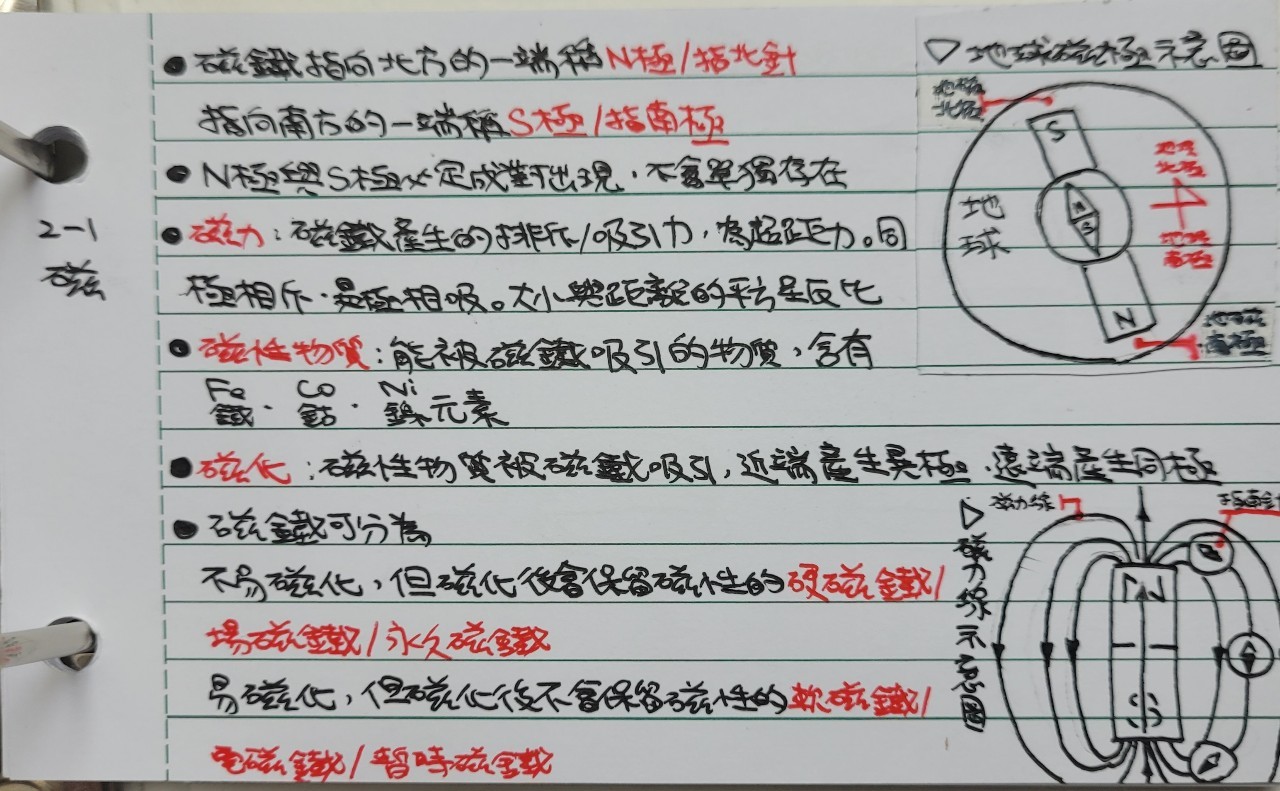 2-1
磁
● 磁鐵指向北方的一端稱N極/指北針
指向南方的一端稱S極/指南極
● N極與S極必定成對出現，不會單獨存在
● 磁力：磁鐵產生的排斥/吸引力，為超距力。同
極相斥，異極相吸。大小與距離的平方呈反比
● 磁性物質：能被磁鐵吸引的物質，含有
Fe Co Ni
鐵、鈷、鎳元素
● 磁化：磁性物質被磁鐵吸引，近端產生異極，遠端產生同極
● 磁鐵可分為
不易磁化，但磁化後會保留磁性的硬磁鐵/
場磁鐵/永久磁鐵
易磁化，但磁化後不會保留磁性的軟磁鐵/
電磁鐵/暫時磁鐵
▽地球磁極示意圖
地磁
北極
S
地理
北極
地
球
N
S
地理
南極
N
地磁
南極
▷磁力線示意圖
磁力線
指南針
N
S